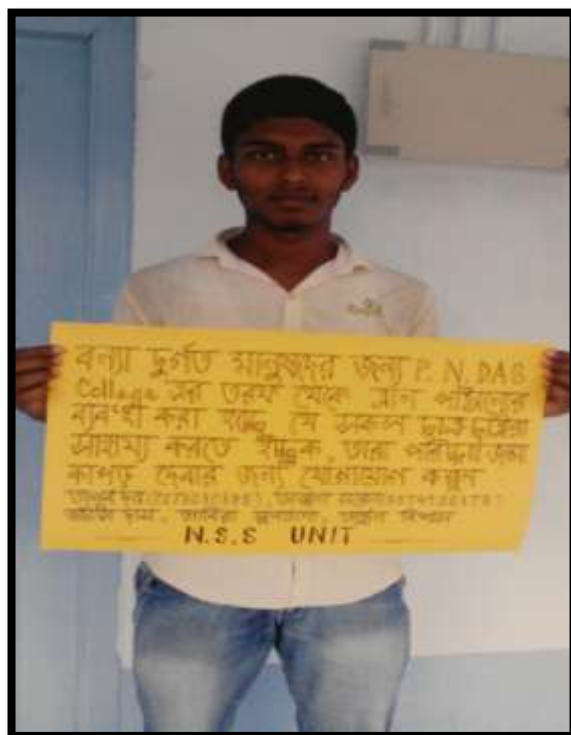 বন্যা দুর্গত মানুষদের জন্য P. N. DAS
College এর তরফ থেকে ত্রান পাঠানোর
ব্যবস্থা করা হচ্ছে, যে সকল ছাত্র ছাত্রীরা
সাহায্য করতে ইচ্ছুক, তারা জামা
কাপড় দেবার জন্য যোগাযোগ করুন
N.S.S UNIT